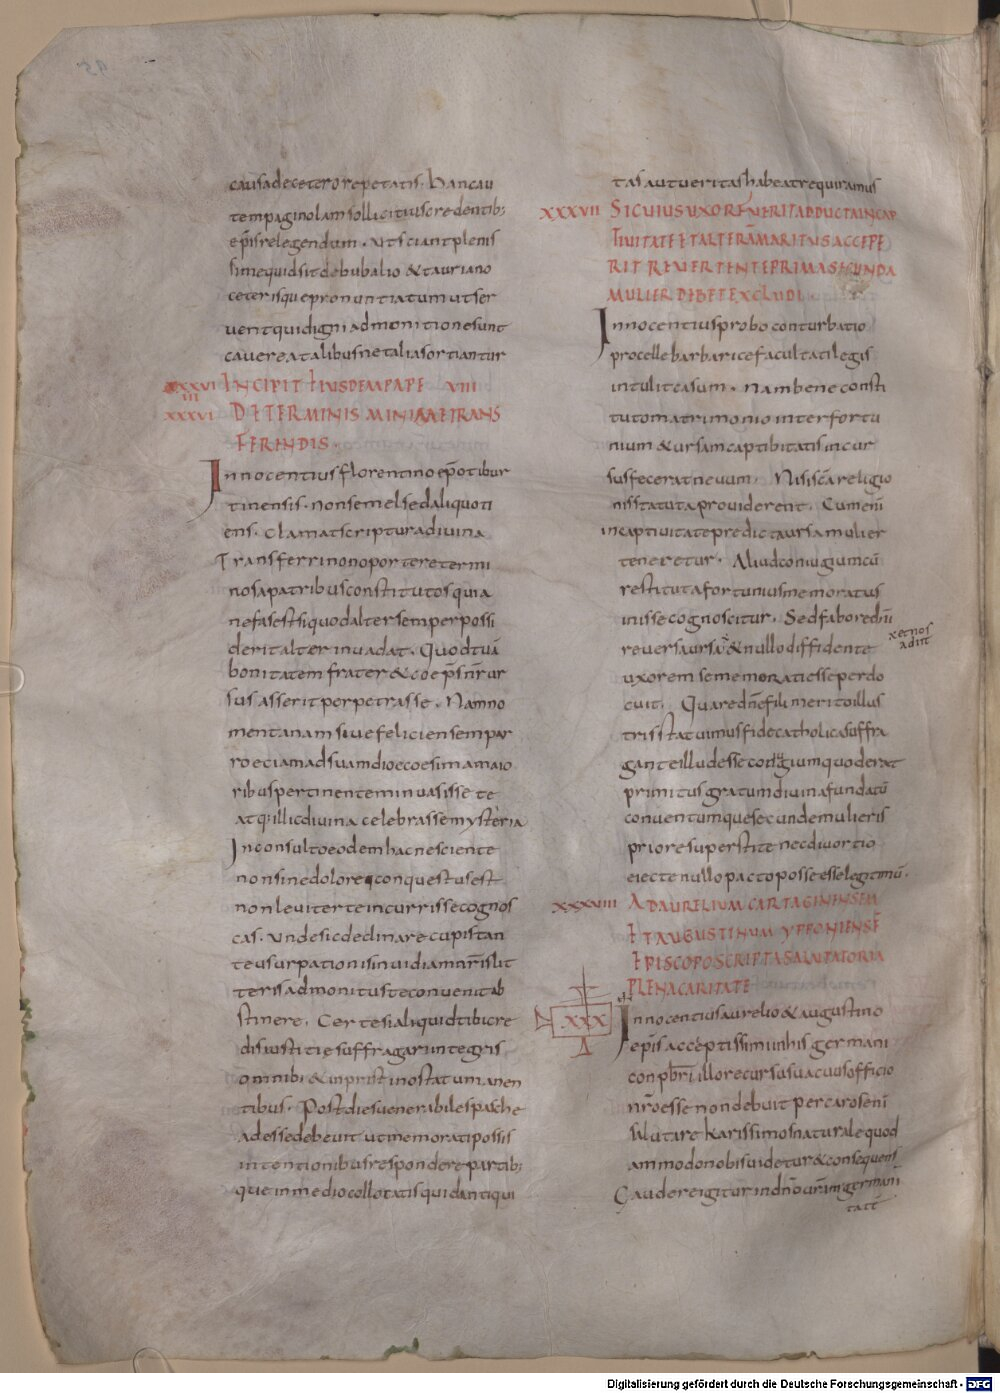 causa de cetero repetatis. hanc au
tem paginolam sollicitius credentib;
ep̅is relegendam. ut sciant plenis
sime quid sit de bubalio & tauriano
ceterisque pronuntiatum ut ser
vent qui digni admonitione sunt
cavere a talibus ne talia sortiantur
XXXVI INCIPIT EIUSDEM PAPE VIII
III
XXXVI DE TERMINIS MINIME TRANS
FERENDIS.
Innocentius florentino ep̅o tibur
tinensis. non semel sed aliquoti
ens. clamat scriptura divina
Transferri non oportere termi
nos a patribus constitutos quia
nefas est si quod alter semper possi
derit alter invadat. Quod tuā
bonitatem frater & coep̅s n̅r rur
sus asserit perpetrasse. Nam no
mentanam sive feliciensem par
roeciam ad suam dioecoesim a maio
ribus pertinentem invasisse te
atq; illic divina celebrasse mysteria
Inconsulto eodem hac nesciente
non sine dolore conquestus est
non leviter te incurrisse cognos
cas. unde si c declinare cupis tan
te usurpationis invidiam n̅ris lit
teris admonitus te convenit ab
stinere. Certe si aliquid tibi cre
dis iustitie suffragari integris
omnibi & in pristino statu manen
tibus. Post die suenerabiles pasche
adesse debevit ut memorati possis
intentionibus respondere partib;
que in medio collotatis quid antiqui
tas aut veritas habeat requiramus
XXXVII SI CUIUS UXOR VENERIT ABDUCTA IN CAP
TIVITATE ET ALTERĀ MARITUS ACCEPE
RIT REVERTENTE PRIMA SECUNDA
MULIER DEBET EXCLUDI
Innocentius probo conturbatio
procelle barbarice facultati legis
intulit casum. nam bene consti
tuto matrimonio inter fortu
nium & ursam captibitatis incur
sus fecerat nevum. Nisi sc̅a religio
nis statuta providerent. Cum eni̅
in captivitate predicta ursa mulier
teneretur. Aliud coniugium cū
restituta fortunius memoratus
inisse cognoscitur. Sed fabore dn̅i
reversa ursa & nullo diffidente
x et nos
adiit
uxorem se memorati esse perdo
cuit. Quare dn̅e fili merito illus
tris statuimus fide catholica suffra
gante illud esse coniugium quod erat
primitus gratum divina fundatū
conventumque secunde mulieris
priore superstite nec divortio
eiecte nullo pacto posse esse legitimū.
XXXVIIII AD AURELIUM CARTAGINENSEM
ET AUGUSTINUM YPPONIENSĒ
EPISCOPO SCRIPTA SALUTATORIA
PLENA CARITATE
XXX
Innocentius aurelio & augustino
ep̅is acceptissimi in his germani
conpb̅ri illo recursus vacuus officio
n̅ro esse non debuit per caros eni̅
salutare karissimos naturale quod
ammodo nobis videtur & consequens
Gaudere igitur in dn̅o ur̅am germani
tatē